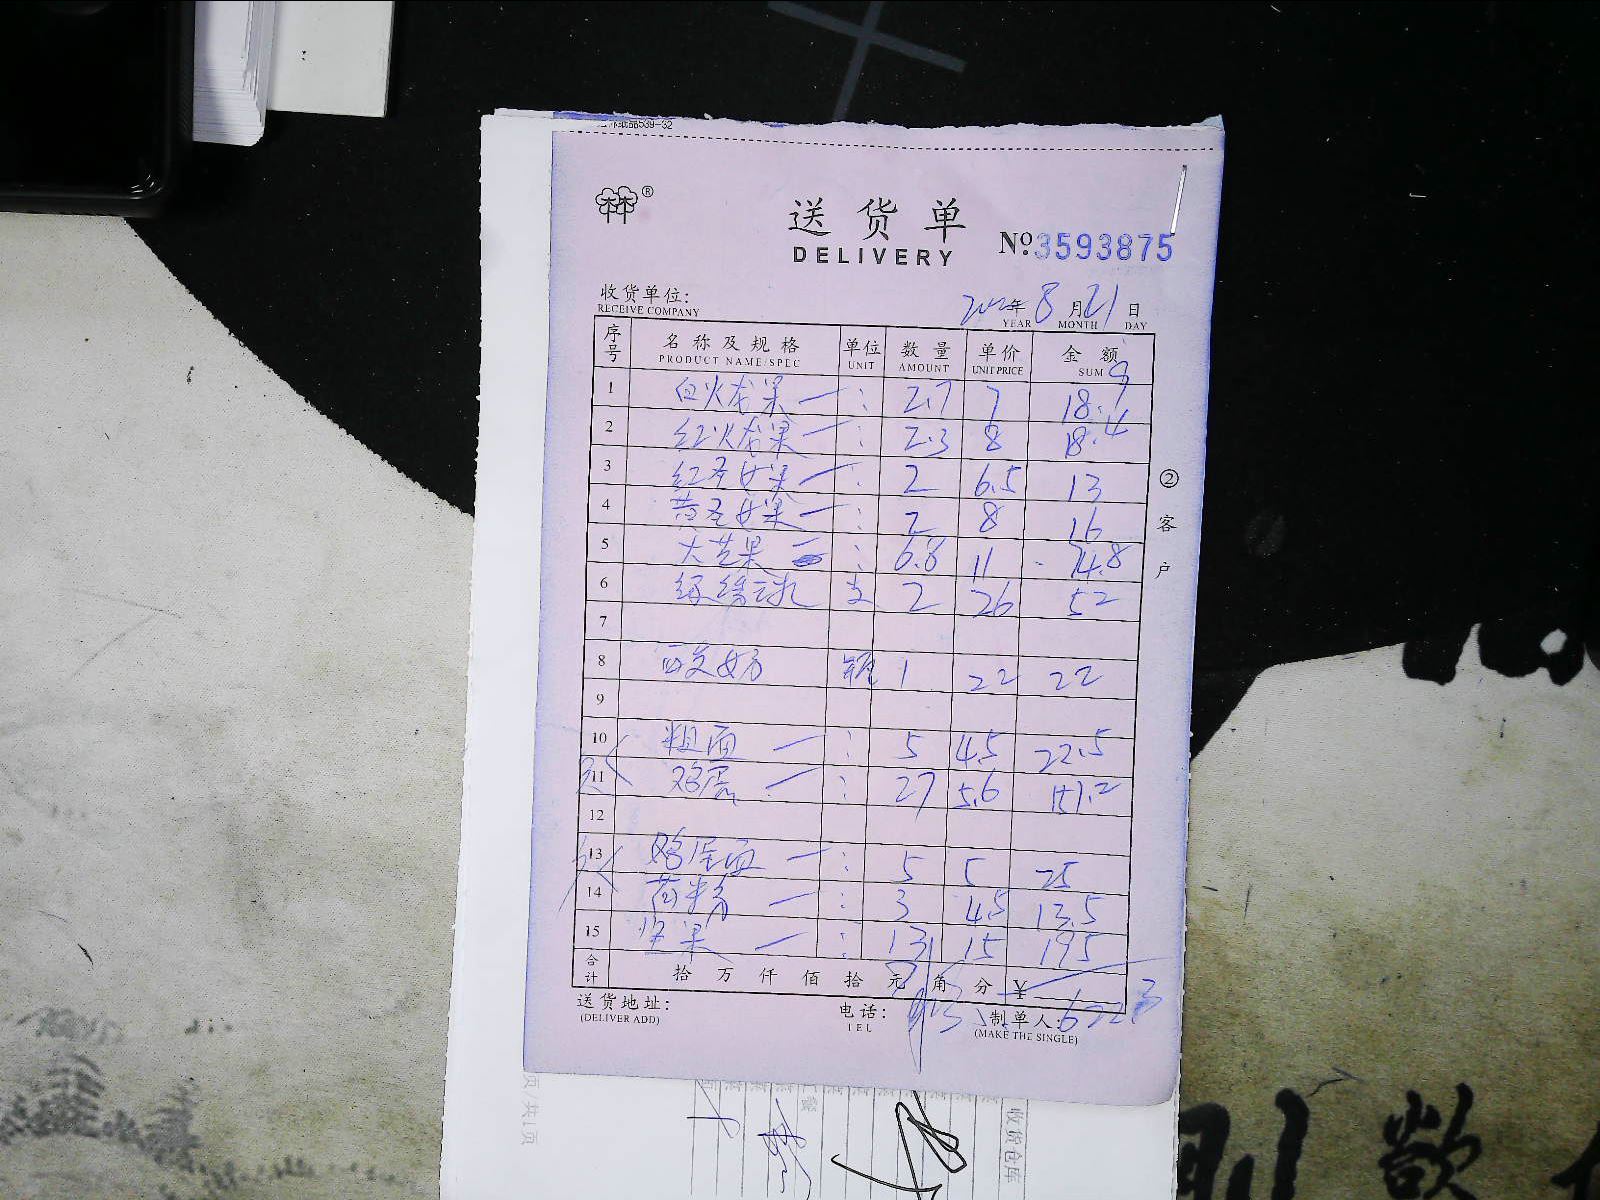 纸品539-32
送货单
DELIVERY
№ 3593875
收货单位:
RECEIVE COMPANY
年 8 月 21 日
YEAR MONTH DAY
序号 名称及规格 单位 数量 单价 金额
PRODUCT NAME/SPEC UNIT AMOUNT UNIT PRICE SUM
1 白火龙果 一 : 2.7 7 18.9
2 红火龙果 一 : 2.3 8 18.4
3 红圣女果 一 : 2 6.5 13
4 黄圣女果 一 : 2 8 16
5 大芒果 : 6.8 11 74.8
6 支 2 26 52
7
8 1 22 22
9
10 粗面 一 : 5 4.5 22.5
11 鸡蛋 一 : 27 5.6 151.2
12
13 鸡蛋面 一 : 5 5 25
14 米粉 一 : 3 4.5 13.5
15 坚果 一 : 13 15 195
合计 拾 万 仟 佰 拾 元 角 分 ¥
送货地址: 电话: 制单人: 622.3
(DELIVER ADD) TEL (MAKE THE SINGLE)
②客户
收货仓库
页/共1页